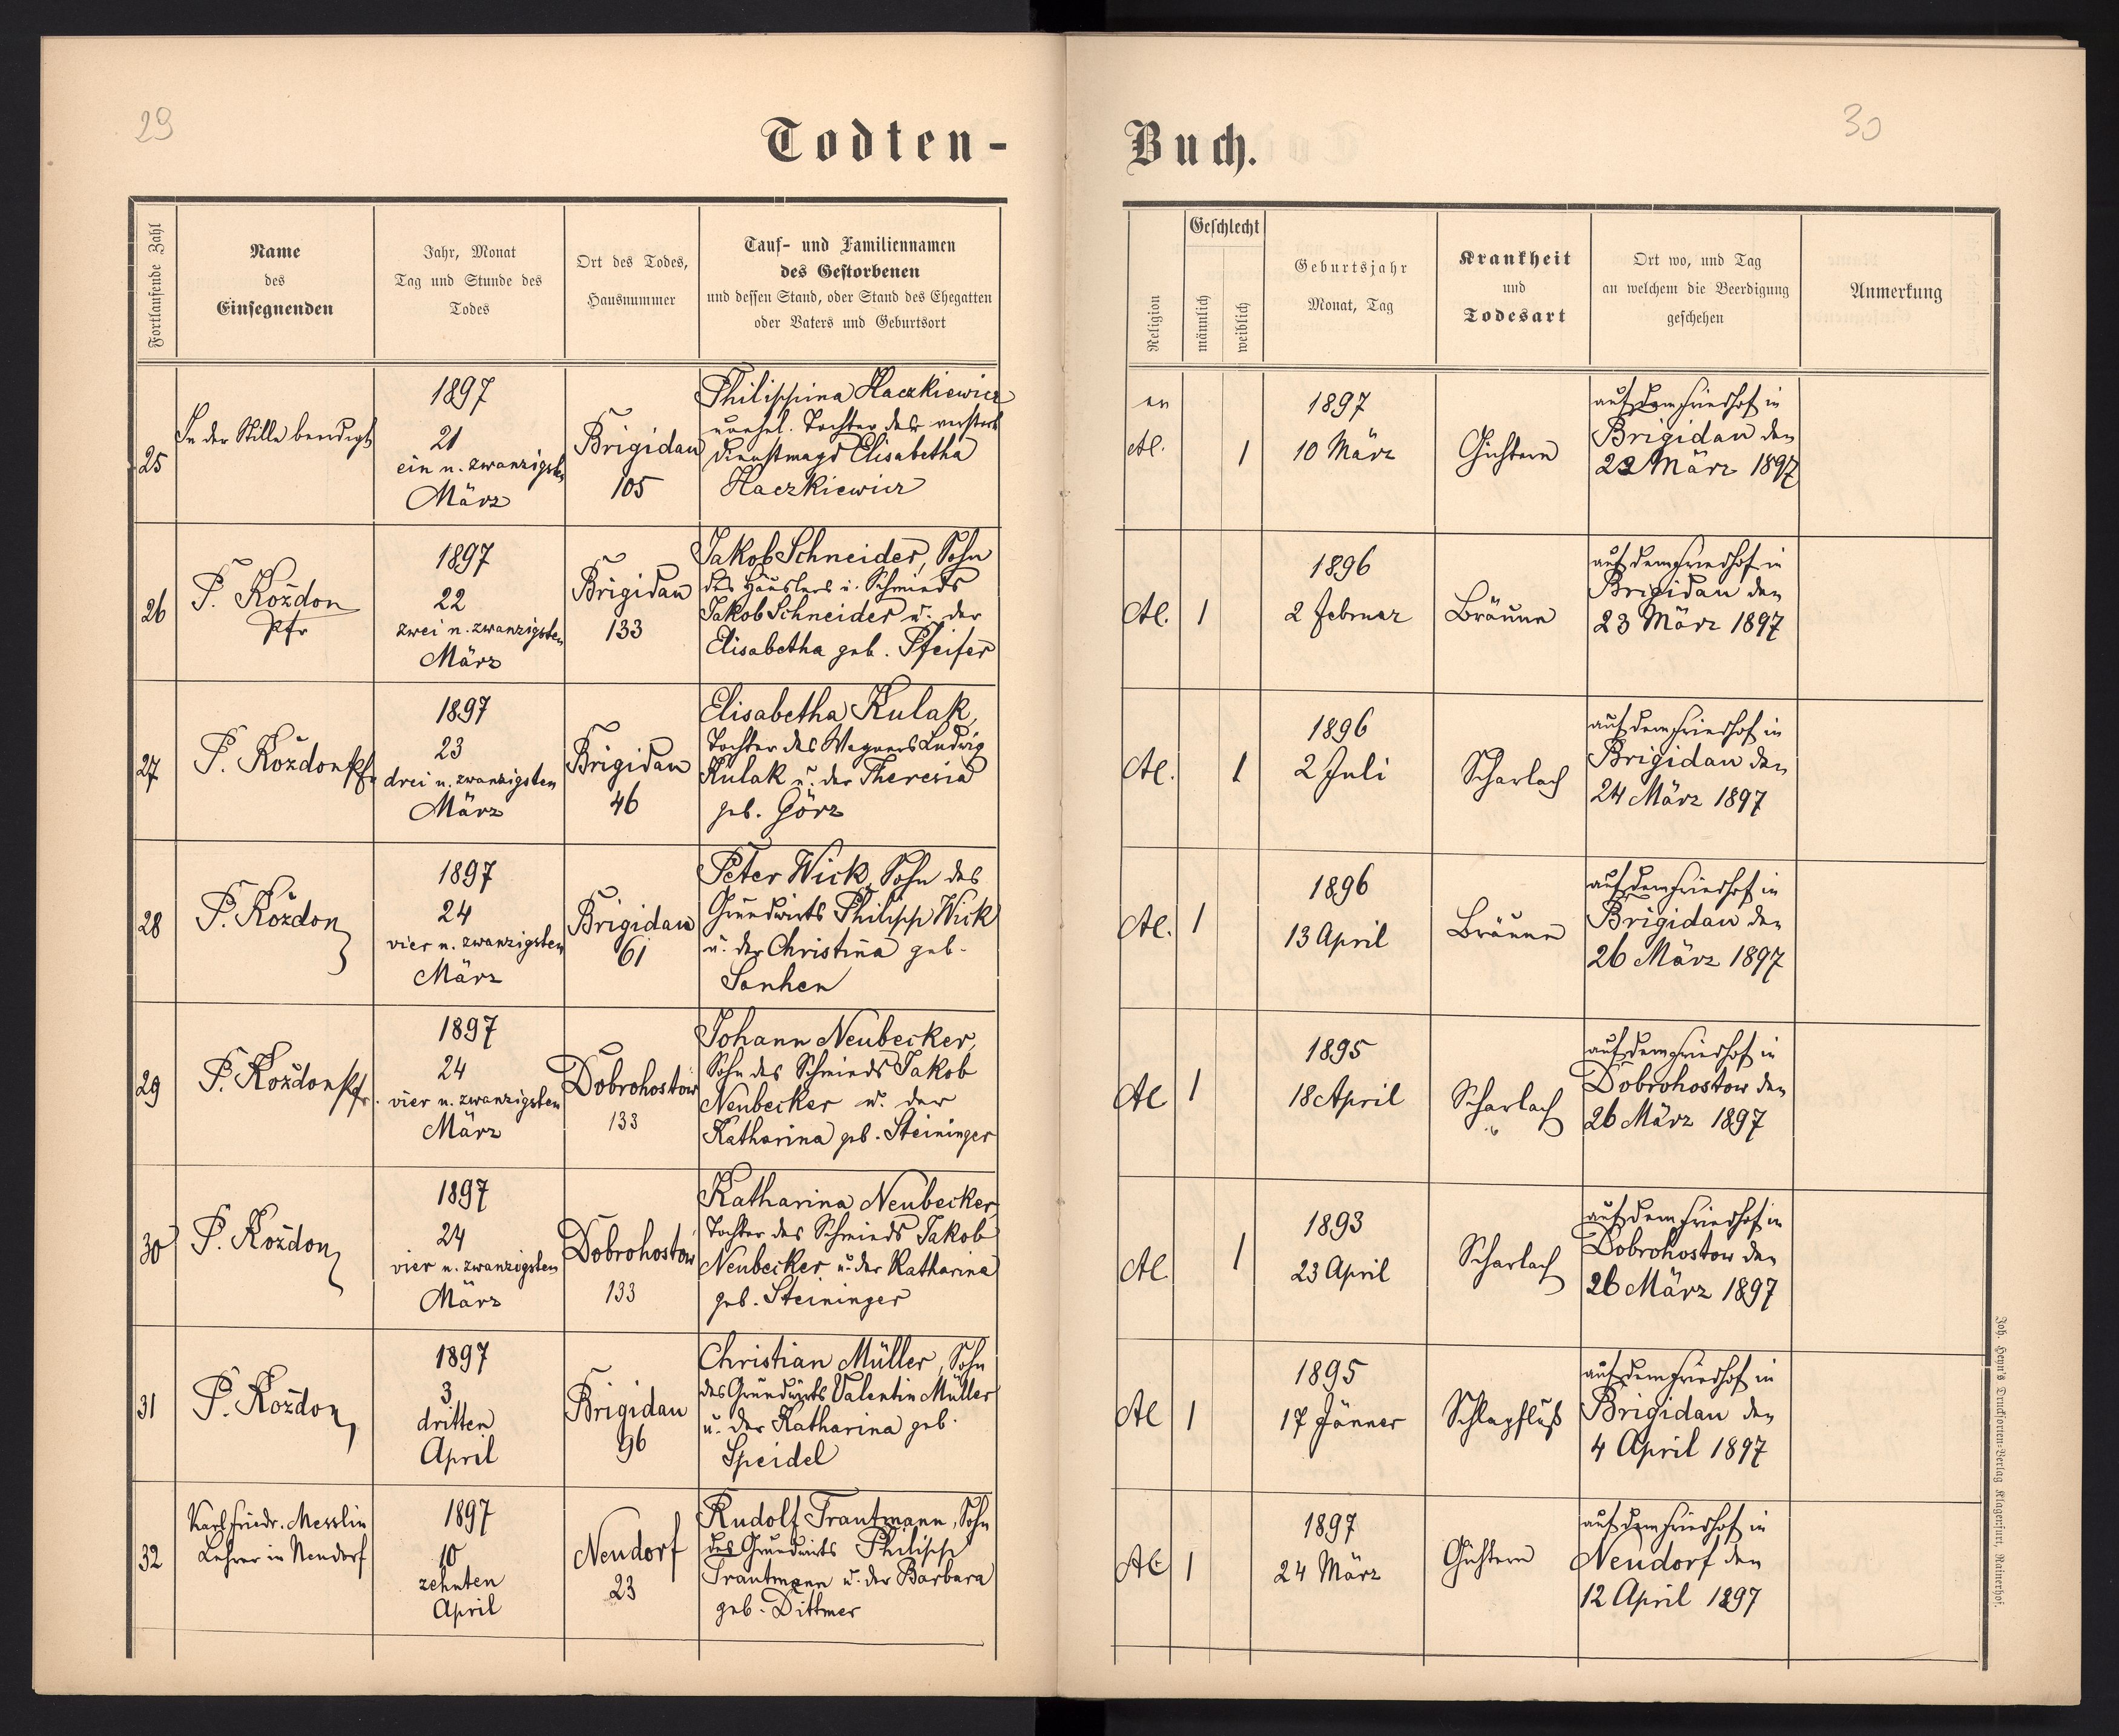 29
30
Todten-
Buch.
Fortlaufende Zahl
Name
des
Einsegnenden
Jahr, Monat
Tag und Stunde des
Todes
Ort des Todes,
Hausnummer
Tauf- und Familiennamen
des Gestorbenen
und dessen Stand, oder Stand des Ehegatten
oder Vaters und Geburtsort
Religion
Geschlecht
männlich
weiblich
Geburtsjahr
Monat, Tag
Krankheit
und
Todesart
Ort wo, und Tag
an welchem die Beerdigung
geschehen
Anmerkung
25
In der Stille beerdigt
1897
21
ein u. zwanzigsten
März
Brigidau
105
Philippina Haczkiewicz
unehel. Tochter der verstorb
Dienstmagd Elisabetha
Haczkiewicz
ev
A.C.
1
1897
10 März
Gichtern
auf dem Friedhof in
Brigidau den
22 März 1897
26
P. Kożdon
Pfr
1897
22
zwei u. zwanzigsten
März
Brigidau
133
Jakob Schneider, Sohn
des Häuslers u. Schmieds
Jakob Schneider u. der
Elisabetha geb. Pfeifer
A.C.
1
1896
2 Februar
Bräune
auf dem Friedhof in
Brigidau den
23 März 1897
27
P. Kożdon Pfr
1897
23
drei u. zwanzigsten
März
Brigidau
46
Elisabetha Kulak,
Tochter des Wagners Ludwig
Kulak u. der Theresia
geb. Görz
A.C.
1
1896
2 Juli
Scharlach
auf dem Friedhof in
Brigidau den
24 März 1897
28
P. Kożdon
1897
24
vier u. zwanzigsten
März
Brigidau
61
Peter Wick, Sohn des
Grundwirts Philipp Wick
u. der Christina geb.
Sanhen
A.C.
1
1896
13 April
Bräune
auf dem Friedhof in
Brigidau den
26 März 1897
29
P. Kożdon Pfr.
1897
24
vier u. zwanzigsten
März
Dobrohostow
133
Johann Neubecker,
Sohn des Schmieds Jakob
Neubecker u. der
Katharina geb. Steininger
A.C
1
1895
18 April
Scharlach
auf dem Friedhof in
Dobrohostow den
26 März 1897
30
P. Kożdon
1897
24
vier u. zwanzigsten
März
Dobrohostow
133
Katharina Neubecker
Tochter des Schmieds Jakob
Neubecker u. der Katharina
geb. Steininger
A.C
1
1893
23 April
Scharlach
auf dem Friedhof in
Dobrohostow den
26 März 1897
31
P. Kożdon
1897
3.
dritten
April
Brigidau
96
Christian Müller, Sohn
des Grundwirts Valentin Müller
u. der Katharina geb.
Speidel
A.C
1
1895
17 Jänner
Schlagfluß
auf dem Friedhof in
Brigidau den
4 April 1897
32
Karl Friedr. Messlin
Lehrer in Neudorf
1897
10
zehnten
April
Neudorf
23
Rudolf Trautmann, Sohn
des Grundwirts Philipp
Trautmann u. der Barbara
geb. Dittmer
A.C
1
1897
24 März
Gichtern
auf dem Friedhof in
Neudorf den
12 April 1897
Joh. Heyn's Drucksorten-Verlag Klagenfurt, Rainerhof.